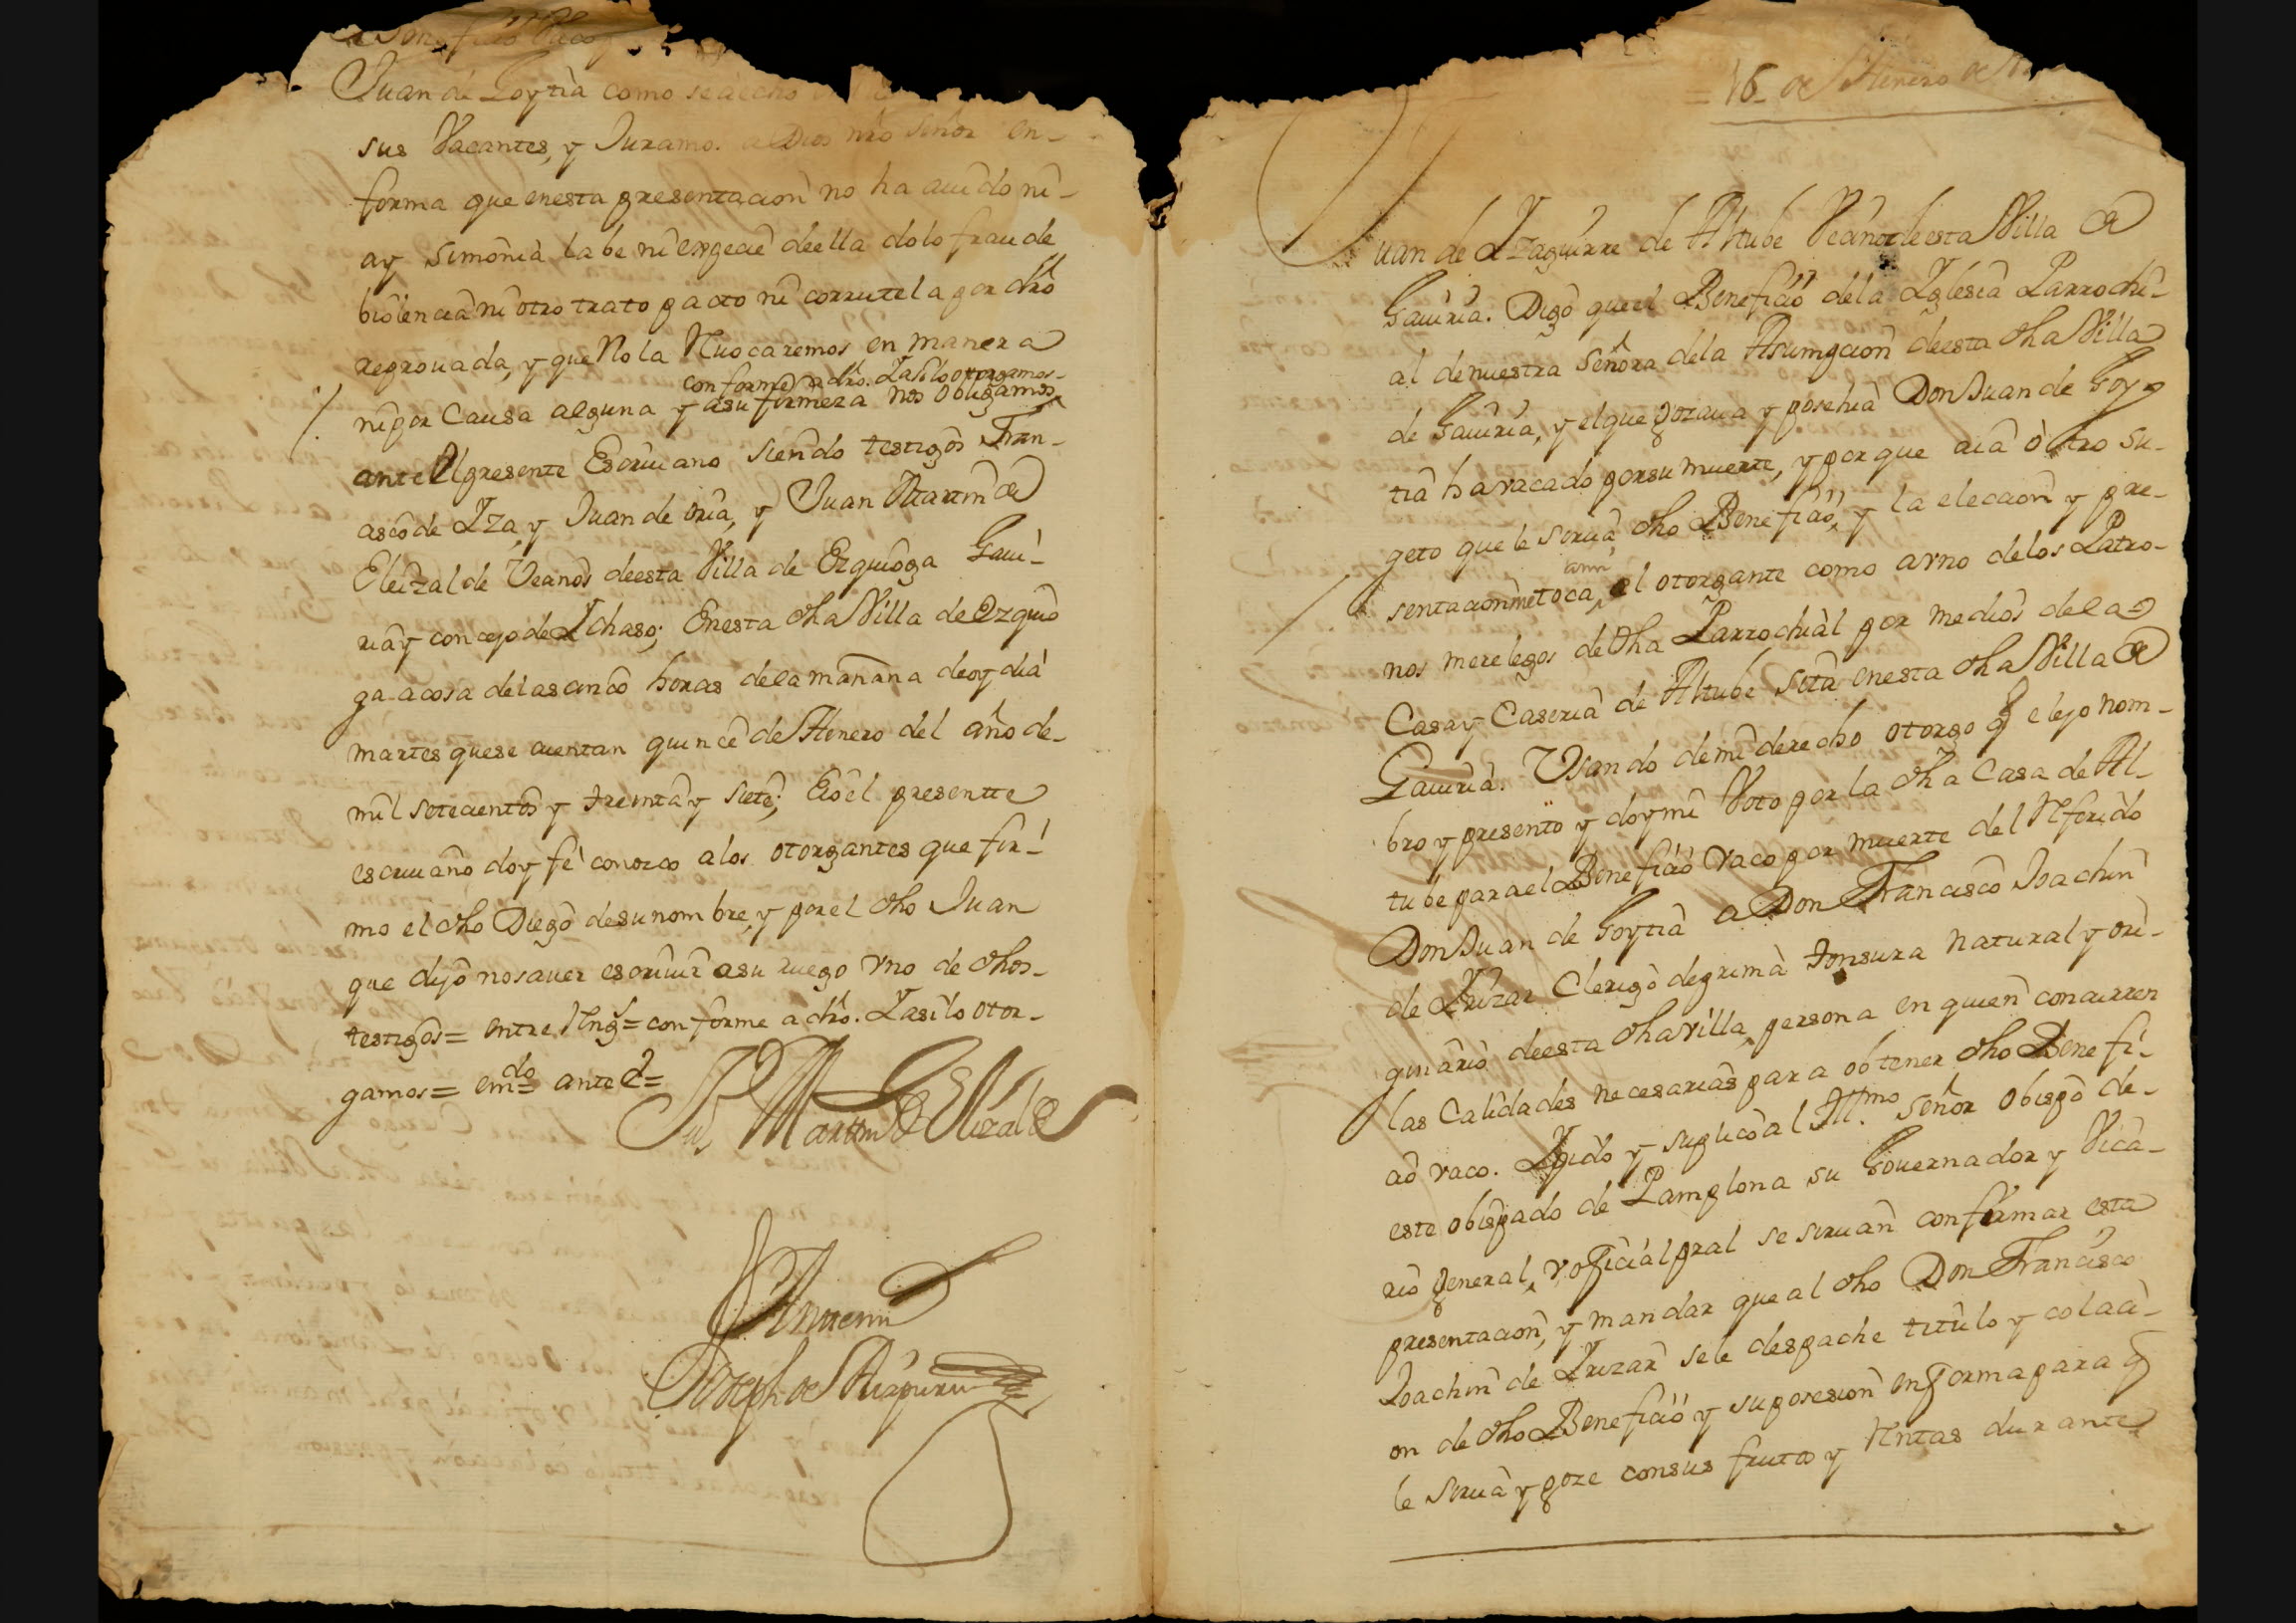 Beneficio Vaco
Juan de Goytia como se a echo
sus Vacantes, y Juramos a Dios nro Señor en-
forma que enesta presentacion no ha auido ni-
ay simonia labe ni espeçie deella dolo fraude
biolencia ni otro trato pacto ni corrutela por dro
reprouada, y que No la Reuocaremos en manera
conforme a dro. Y asi lo otorgamos-
ni por Causa alguna y asu firmeza nos obligamos
ante El presente Escriuano siendo testigos Fran-
asco de Yza, y Juan de oria, y Juan Martin de
Eleizalde Vecinos deesta Villa de Ezquioga Gaui-
ria y concejo de Ychaso; Enesta dha Villa de Ezquio
ga a cosa delas cinco horas dela mañana de oy dia
martes que se cuentan quince de Henero del año de-
mil setecientos y treinta y siete; E io el presentte
escriuano doy fe conozco a los otorgantes que fir-
mo el dho Diego de su nombre, y por el dho Juan
que dijo no sauer escriuir a su ruego vno de dhos-
testigos= entre Rengs= conforme a dro. Y asi lo otor-
gamos= emdo= ante el=
Jun Martin de Elizalde
Ante mi
Joseph de Aiapuru
= 16 de Henero de
Juan de Yzaguirre de Altube Vecino deesta Villa de
Gauiria. Digo que el Beneficio dela Yglesia Parrochi-
al de nuestra Señora dela Asumpcion deesta dha Villa
de Gauiria, y el que gozaua y posehia Don Juan de Goy
tia ha vacado por su muerte, y por que aia otro su-
geto que le sirua dho Beneficio, y la eleccion y pre-
sentacion me toca ami el otorgante como a vno delos Patro-
nos merelegos de dha Parrochial por medios dela
Casa y Caseria de Altube sita enesta dha Villa de
Gauiria. Vsando de mi derecho otorgo q elejo nom-
bro y presento y doy mi Voto por la dha Casa de Al-
tube para el Beneficio vaco por muerte del Referido
Don Juan de Goytia a Don Francisco Joachin
de Yrizar Clerigo de prima tonsura natural y ori-
ginario deesta dha villa, persona en quien concurren
las Calidades necesarias para obtener dho Benefi-
cio vaco. Y pido y suplico al Illmo. señor Obispo de-
este obispado de Pamplona su Gouernador y Vica-
rio general, y oficial pral se siruan confirmar esta
presentacion, y mandar que al dho Don Francisco
Joachin de Yrizar se le despache titulo y colaci-
on de dho Beneficio y su posesion en forma para q
le sirua y goze con sus frutos y Rentas durante